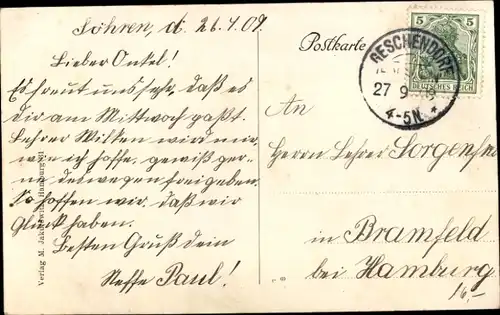 Söhren, d. 26.9.09.
Lieber Onkel!
Es freut uns sehr, daß es
dir am Mittwoch paßt.
Lehrer Wilken wird mir,
wie ich hoffe, gewiß ger-
ne deswegen freigeben.
So hoffen wir, daß wir
Glück haben.
Besten Gruß dein
Neffe Paul!
Verlag M. Hamburg
Postkarte
5 5
DEUTSCHES REICH
RESCHENDORF
27 9
4-5N.
An
Herrn Lehrer Sorgenfrei
in Bramfeld
bei Hamburg
16.-